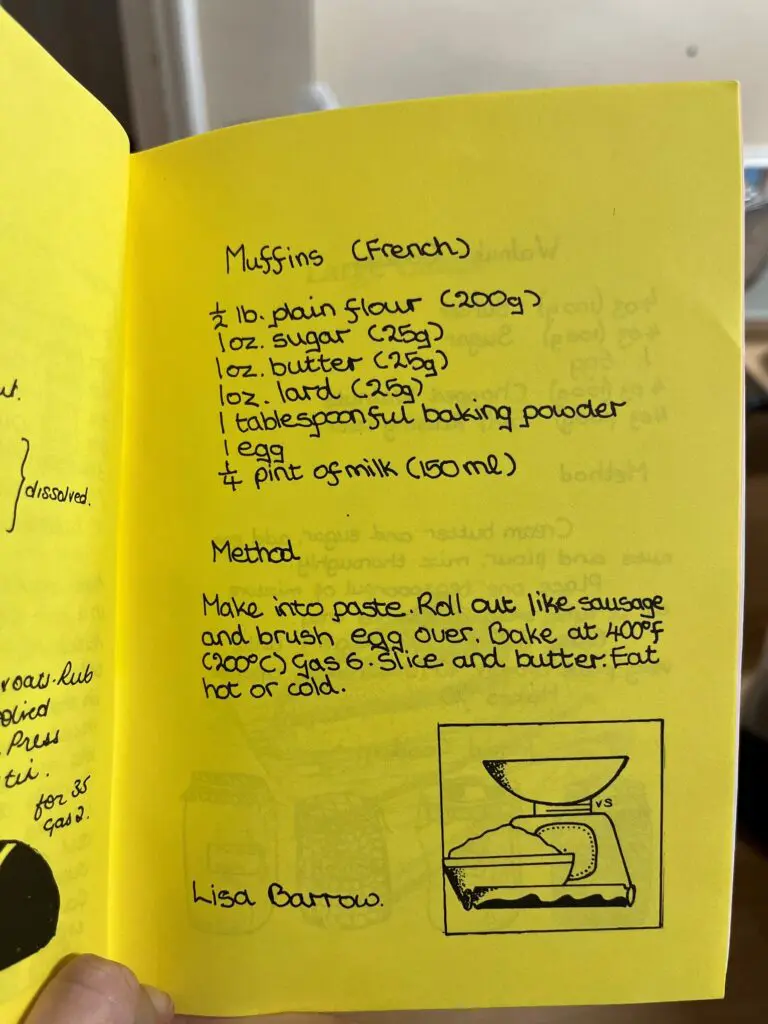 Muffins (French)
½ lb. plain flour (200g)
1oz. sugar (25g)
1oz. butter (25g)
1oz. lard (25g)
1 tablespoonful baking powder
1 egg
¼ pint of milk (150ml)
Method
Make into paste. Roll out like sausage
and brush egg over. Bake at 400°f
(200°C) Gas 6. Slice and butter. Eat
hot or cold.
VS
Lisa Barrow.
dissolved.
Rub
Press
for 35
Gas 2.